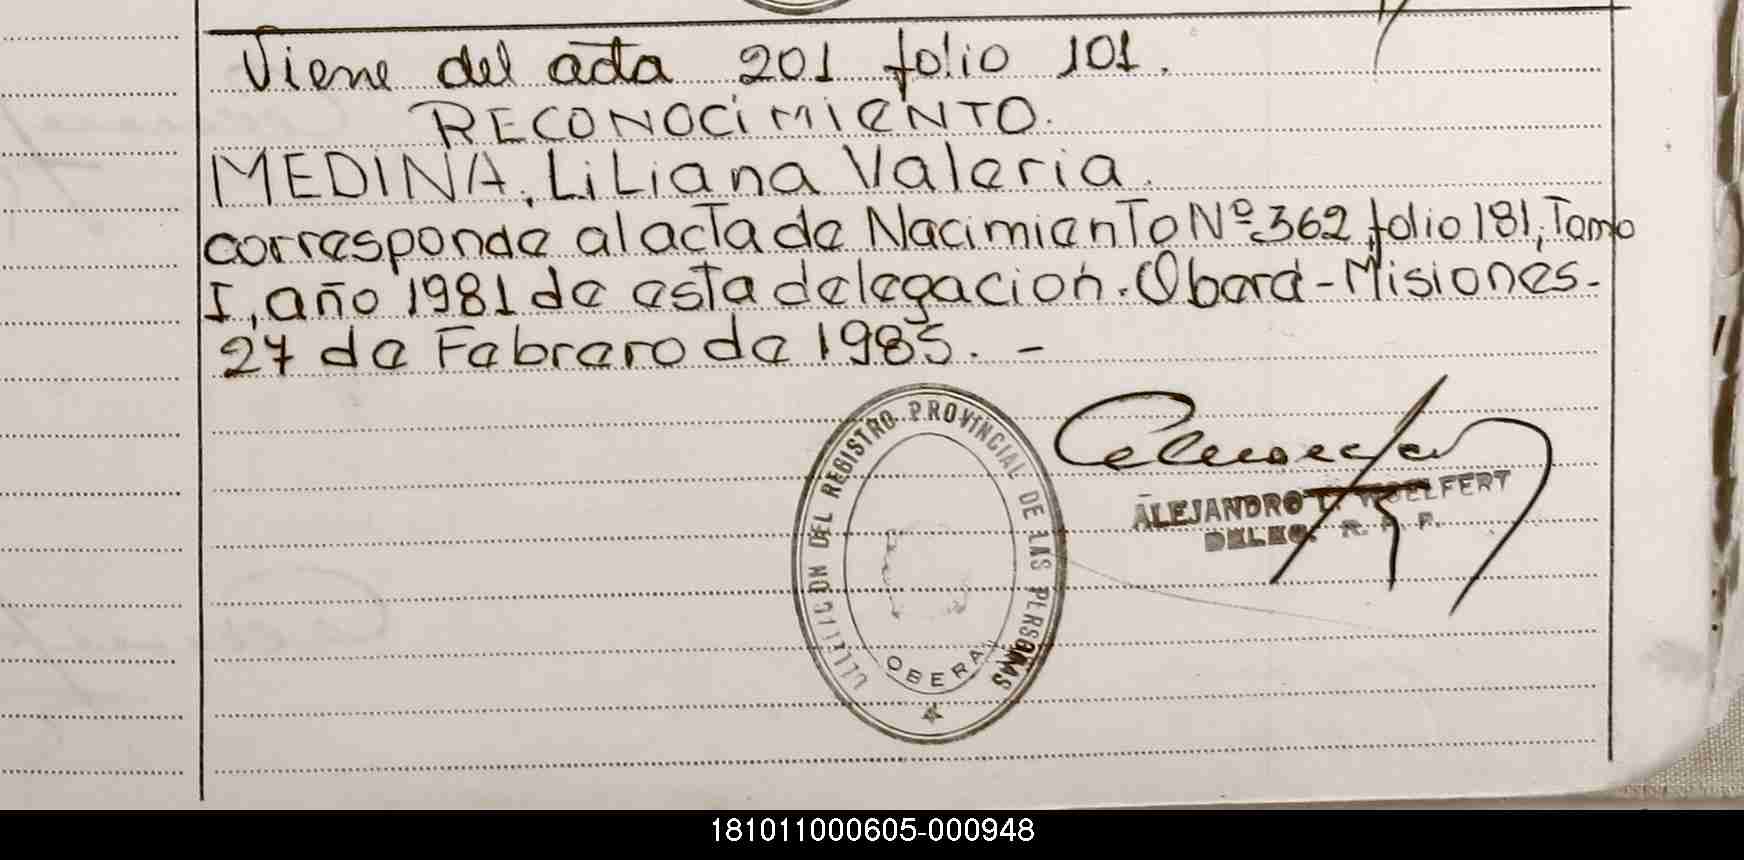 Viene del acta 201 folio 101.
RECONOCIMIENTO.
MEDINA, Liliana Valeria.
corresponde al acta de Nacimiento Nº 362 folio 181, Tomo
I, año 1981 de esta delegacion. Oberá - Misiones.
27 de Febrero de 1985. -
DEL REGISTRO PROVINCIAL DE LAS PERSONAS
OBERA
ALEJANDRO WOELFERT
DELEG. R. P. P.
181011000605-000948